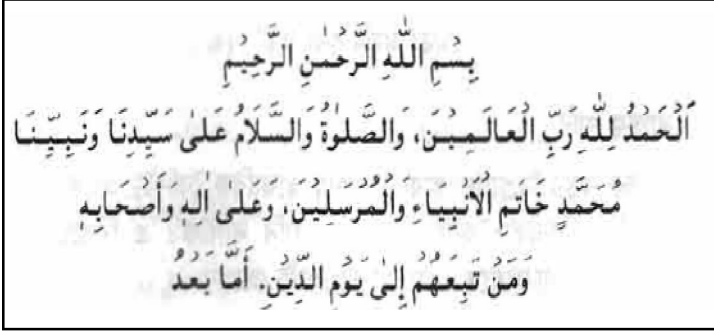 بِسْمِ اللّٰهِ الرَّحْمٰنِ الرَّحِيْمِ
اَلْحَمْدُ لِلّٰهِ رَبِّ الْعَالَمِيْنَ، وَالصَّلٰوةُ وَالسَّلَامُ عَلٰى سَيِّدِنَا وَنَبِيِّنَا
مُحَمَّدٍ خَاتَمِ الْاَنْبِيَاءِ وَالْمُرْسَلِيْنَ، وَعَلٰى اٰلِهٖ وَأَصْحَابِهٖ
وَمَنْ تَبِعَهُمْ إِلٰى يَوْمِ الدِّيْنِ. أَمَّا بَعْدُ